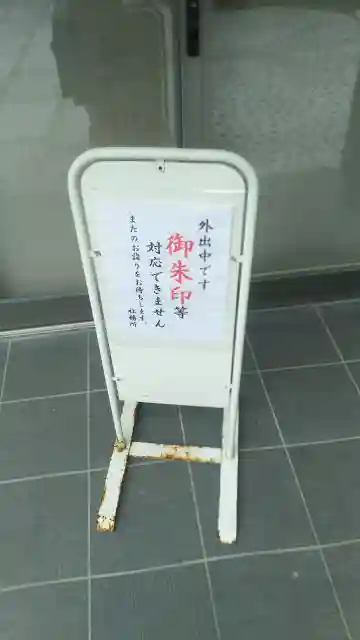 外出中です
御朱印等
対応できません
またのお詣りをお待ちします。
社務所